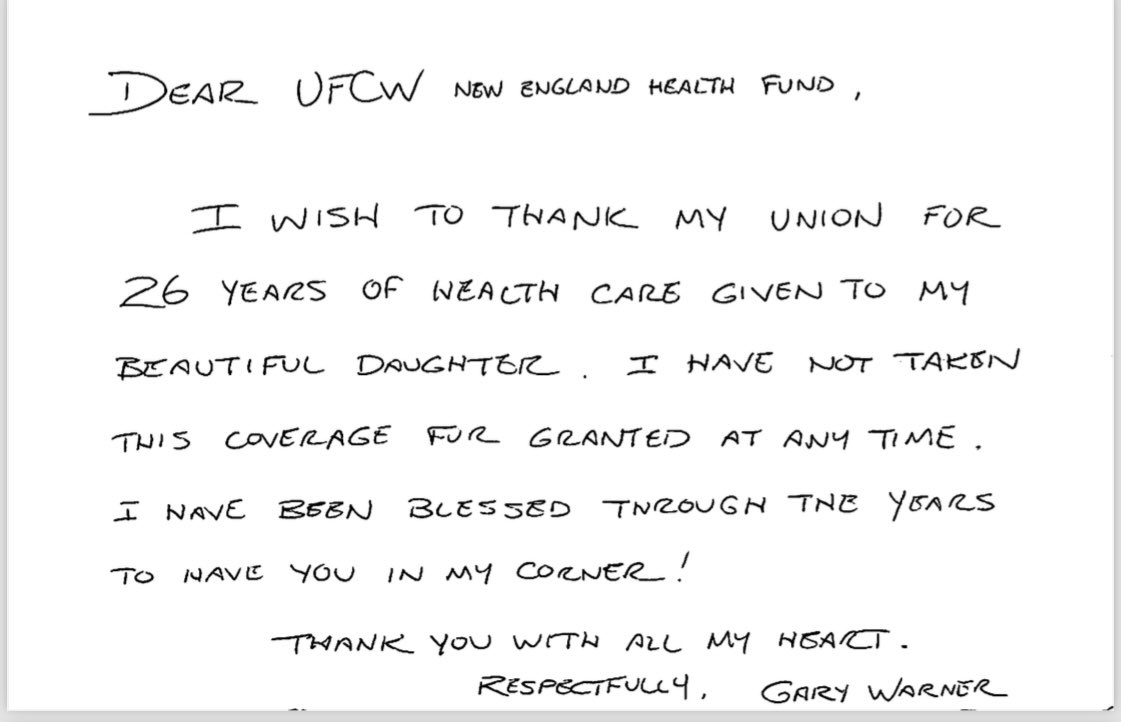 DEAR UFCW NEW ENGLAND HEALTH FUND,
I WISH TO THANK MY UNION FOR
26 YEARS OF HEALTH CARE GIVEN TO MY
BEAUTIFUL DAUGHTER. I HAVE NOT TAKEN
THIS COVERAGE FOR GRANTED AT ANY TIME.
I HAVE BEEN BLESSED THROUGH THE YEARS
TO HAVE YOU IN MY CORNER!
THANK YOU WITH ALL MY HEART.
RESPECTFULLY, GARY WARNER